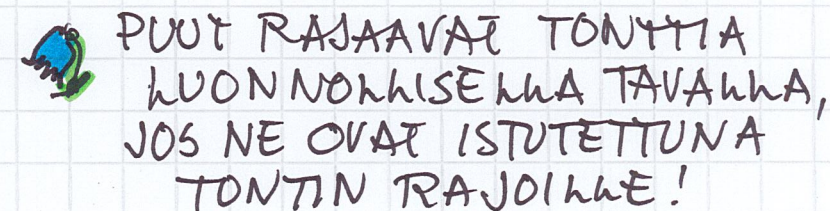 PUUT RAJAAVAT TONTTIA
LUONNOLLISELLA TAVALLA,
JOS NE OVAT ISTUTETTUNA
TONTIN RAJOILLE!